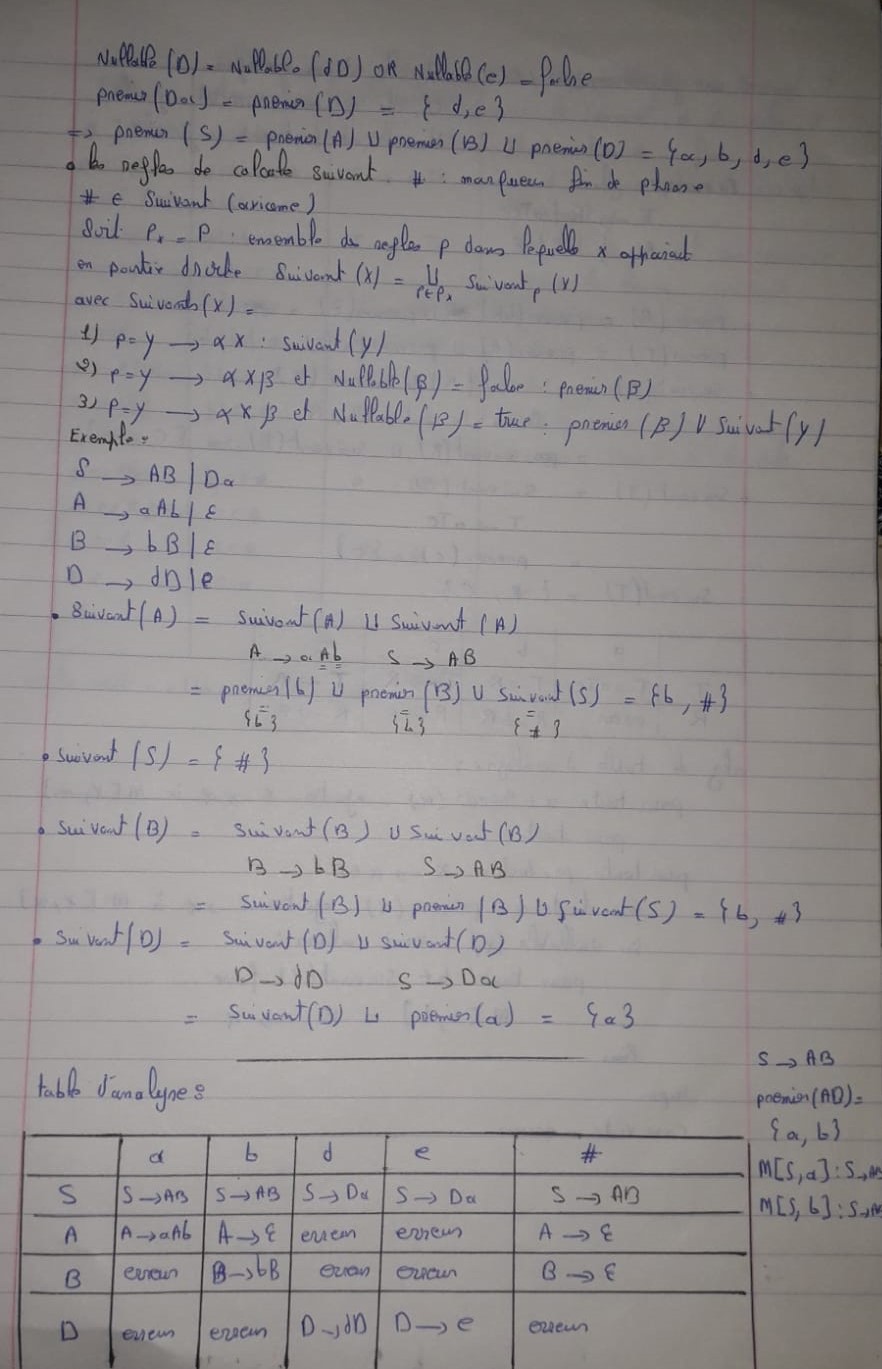 Nullable (D) = Nullable (dD) OR Nullable(e) = false
premier (Da) = premier (D) = { d,e }
=> premier (S) = premier(A) ∪ premier (B) ∪ premier (D) = {a, b, d, e}
• les regles de calcule suivant # : marqueur fin de phrase
# ∈ Suivant (axiome)
Soit Px = P : ensemble de regles p dans lequelle x apparait
en partie droite Suivant (X) = ∪ p∈Px Suivant p (X)
avec Suivants(X) =
1) p = y → αX : Suivant(y)
2) p = y → αXβ et Nullable(β) = false : premier (β)
3) p = y → αXβ et Nullable (β) = true : premier (β) ∪ Suivant (y)
Exemple :
S → AB | Da
A → aAb | ε
B → bB | ε
D → dD | e
• Suivant (A) = Suivant (A) ∪ Suivant (A)
A → aAb S → AB
= premier (b) ∪ premier (B) ∪ Suivant (S) = {b, #}
{b} {b} { # }
• Suivant (S) = { # }
• Suivant (B) = Suivant (B) ∪ Suivant (B)
B → bB S → AB
= Suivant (B) ∪ premier (B) ∪ Suivant (S) = {b, #}
• Suivant (D) = Suivant (D) ∪ Suivant (D)
D → dD S → Da
= Suivant (D) ∪ premier (a) = {a}
table d'analyse :
a b d e #
S S→AB S→AB S→Da S→Da S→AB
A A→aAb A→ε erreur erreur A→ε
B erreur B→bB erreur erreur B→ε
D erreur erreur D→dD D→e erreur
S → AB
premier (AD) =
{a, b}
M[S, a] : S→AB
M[S, b] : S→AB